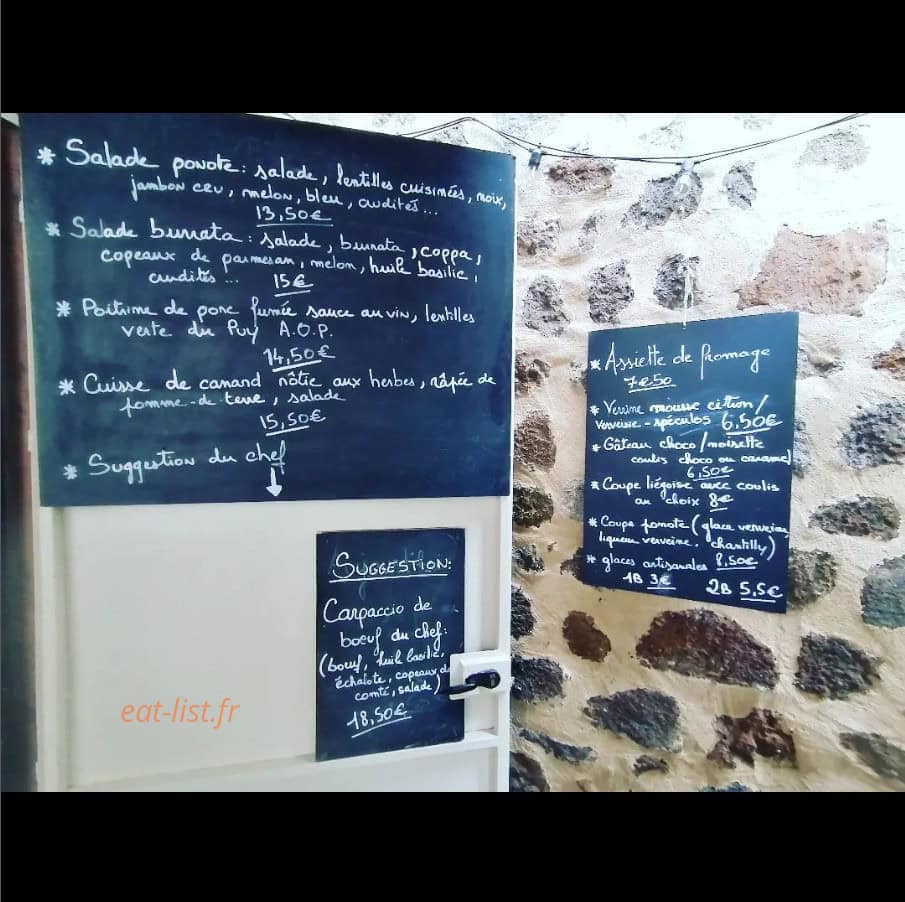 * Salade ponote : salade, lentilles cuisinées, noix,
jambon cru, melon, bleu, crudités ...
13,50€
* Salade burrata : salade, burrata, coppa,
copeaux de parmesan, melon, huile basilic,
crudités ... 15€
* Poitrine de porc fumée sauce au vin, lentilles
verte du Puy A.O.P.
14,50€
* Cuisse de canard rôtie aux herbes, râpée de
pomme-de terre, salade
15,50€
* Suggestion du chef
SUGGESTION:
Carpaccio de
boeuf du chef:
(boeuf, huile basilic,
échalote, copeaux de
comté, salade)
18,50€
* Assiette de fromage
7€50
* Verrine mousse citron/
verveine-spéculos 6,50€
* Gâteau choco/noisette
coulis choco ou caramel
6,50€
* Coupe liégoise avec coulis
au choix 8€
* Coupe ponote (glace verveine,
liqueur verveine, chantilly)
* glaces artisanales 8,50€
1B 3€ 2B 5,5€
eat-list.fr